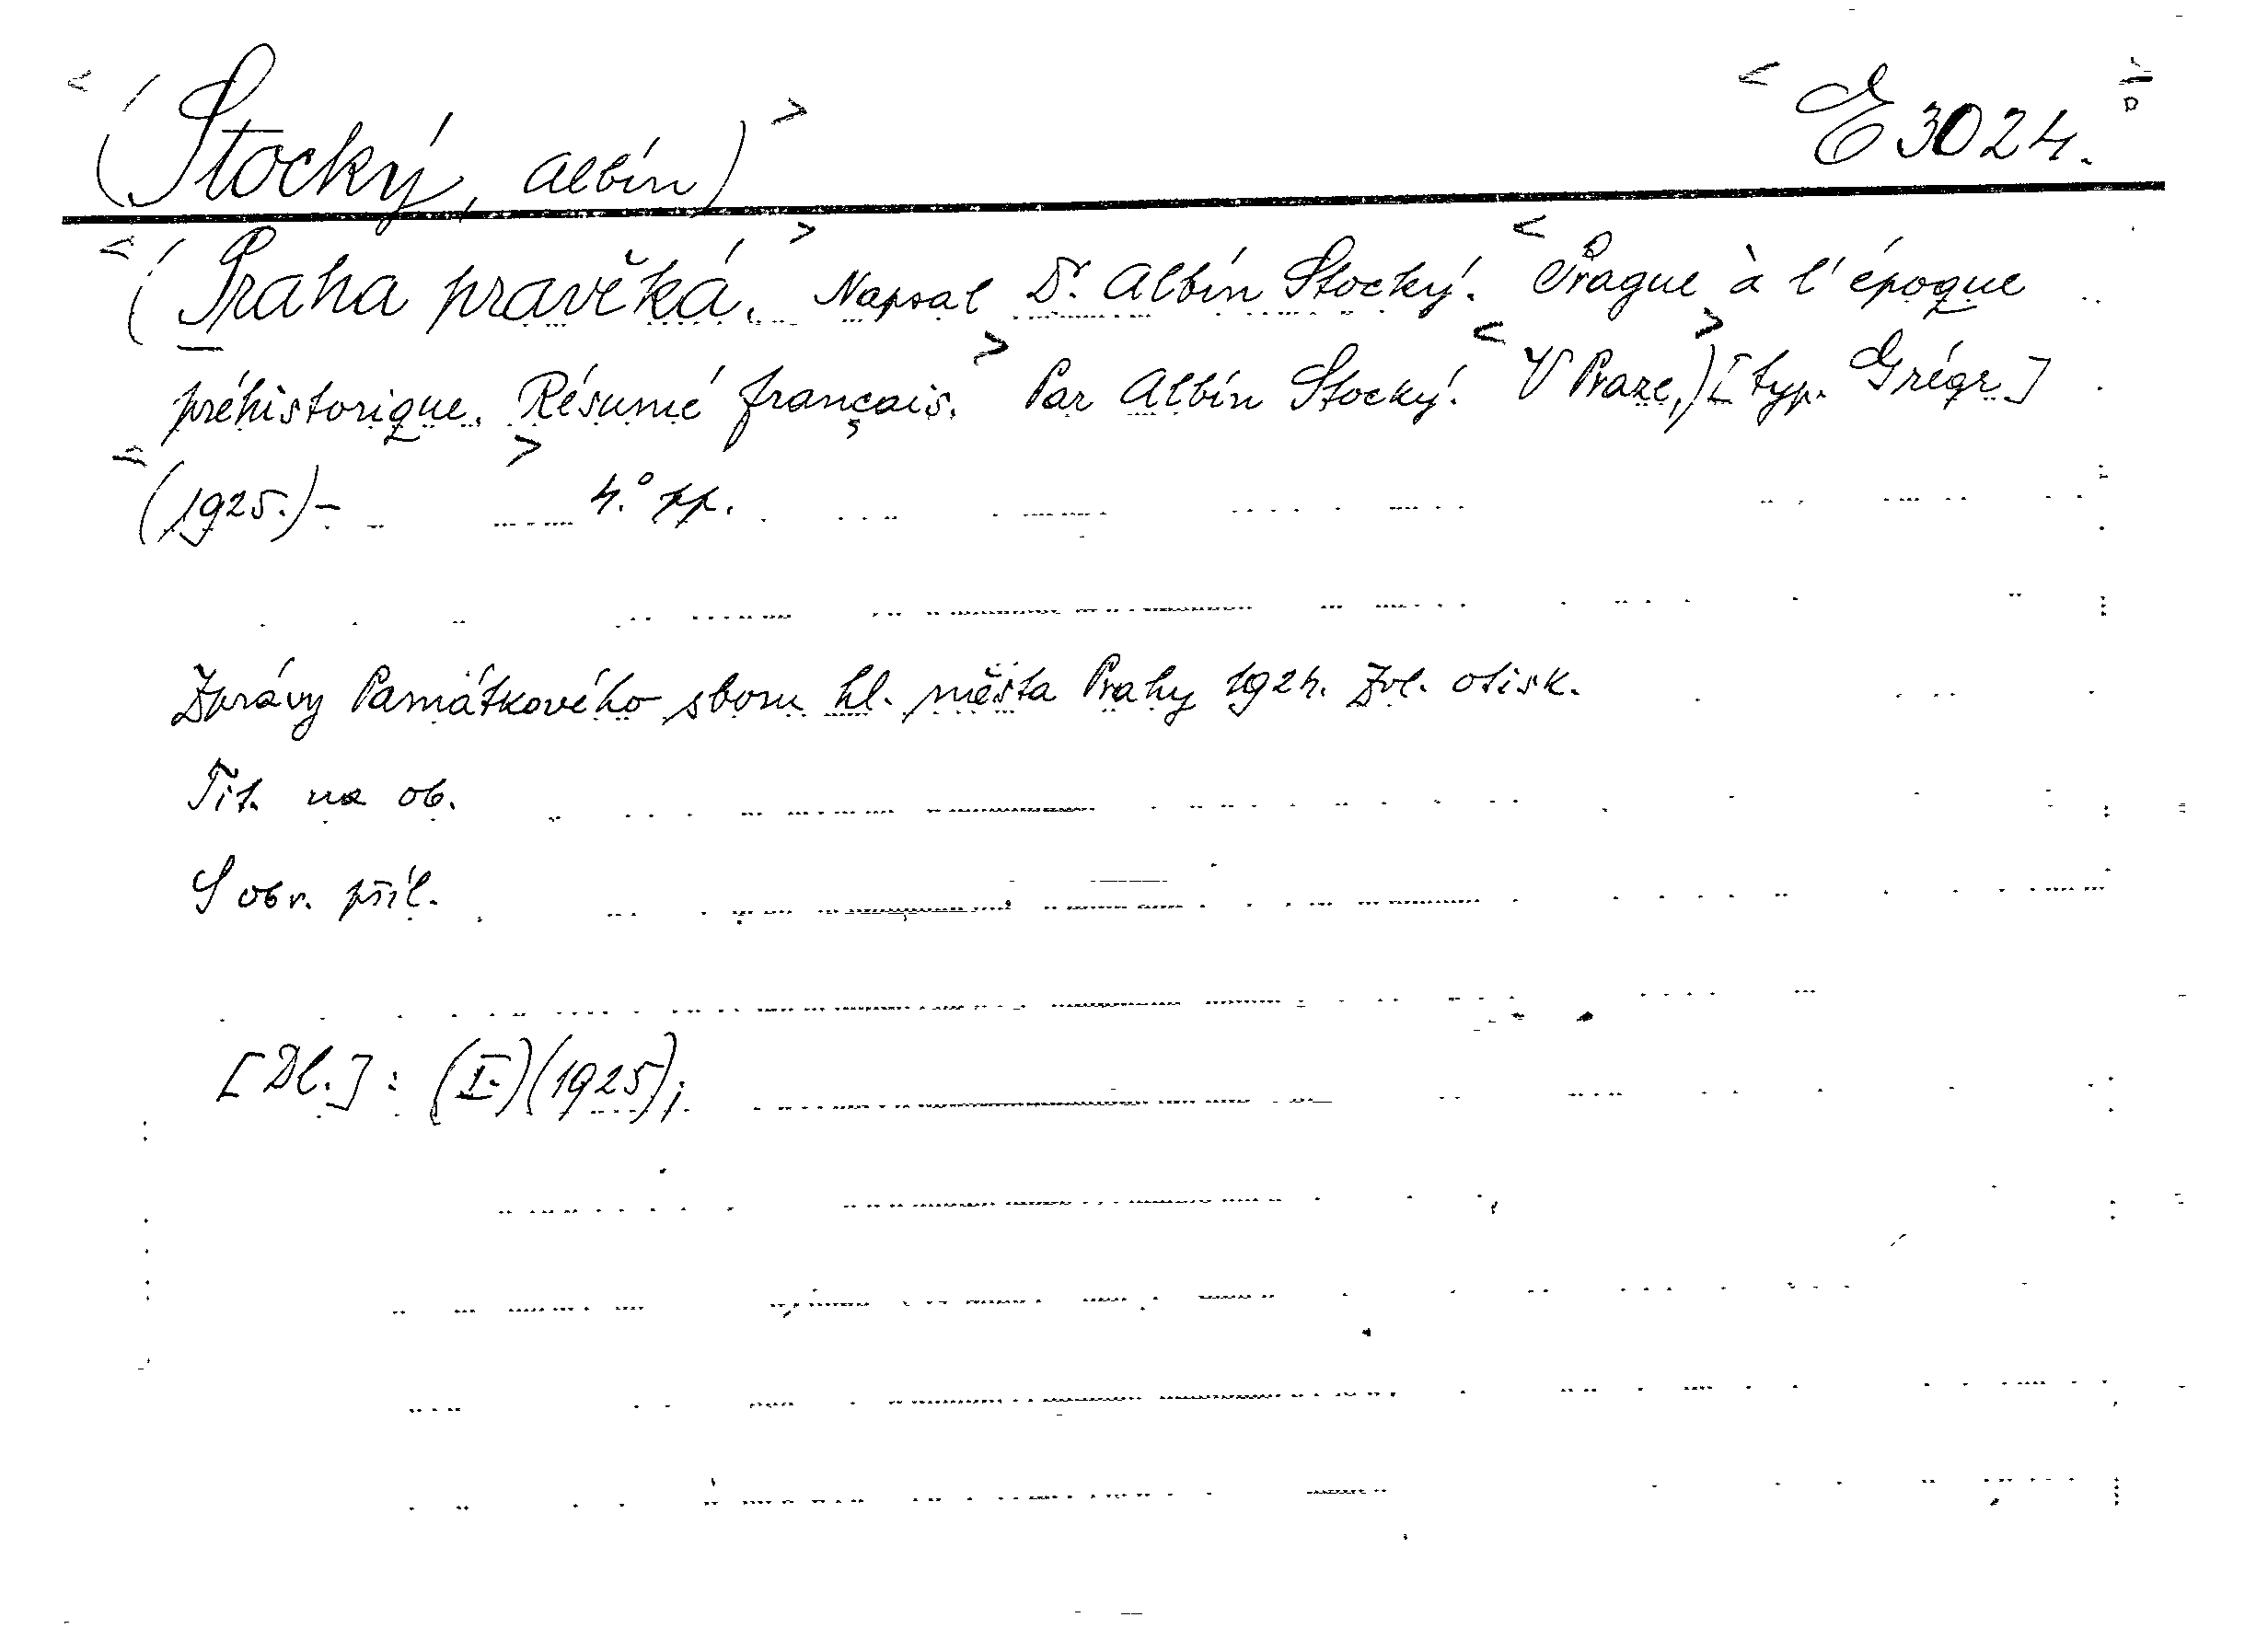 < (Stocký, Albín) > < E 3024. >
< (Praha pravěká. > Napsal Dr. Albín Stocký. < Prague à l'époque
préhistorique. Résumé français. > Par Albín Stocký. < V Praze,) > [typ. Grégr]
< (1925.)- > 4.° pp.
Zprávy Památkového sboru hl. města Prahy 1924. Zvl. otisk.
Tit. na ob.
S obr. příl.
[Dl.]: (I.)(1925);